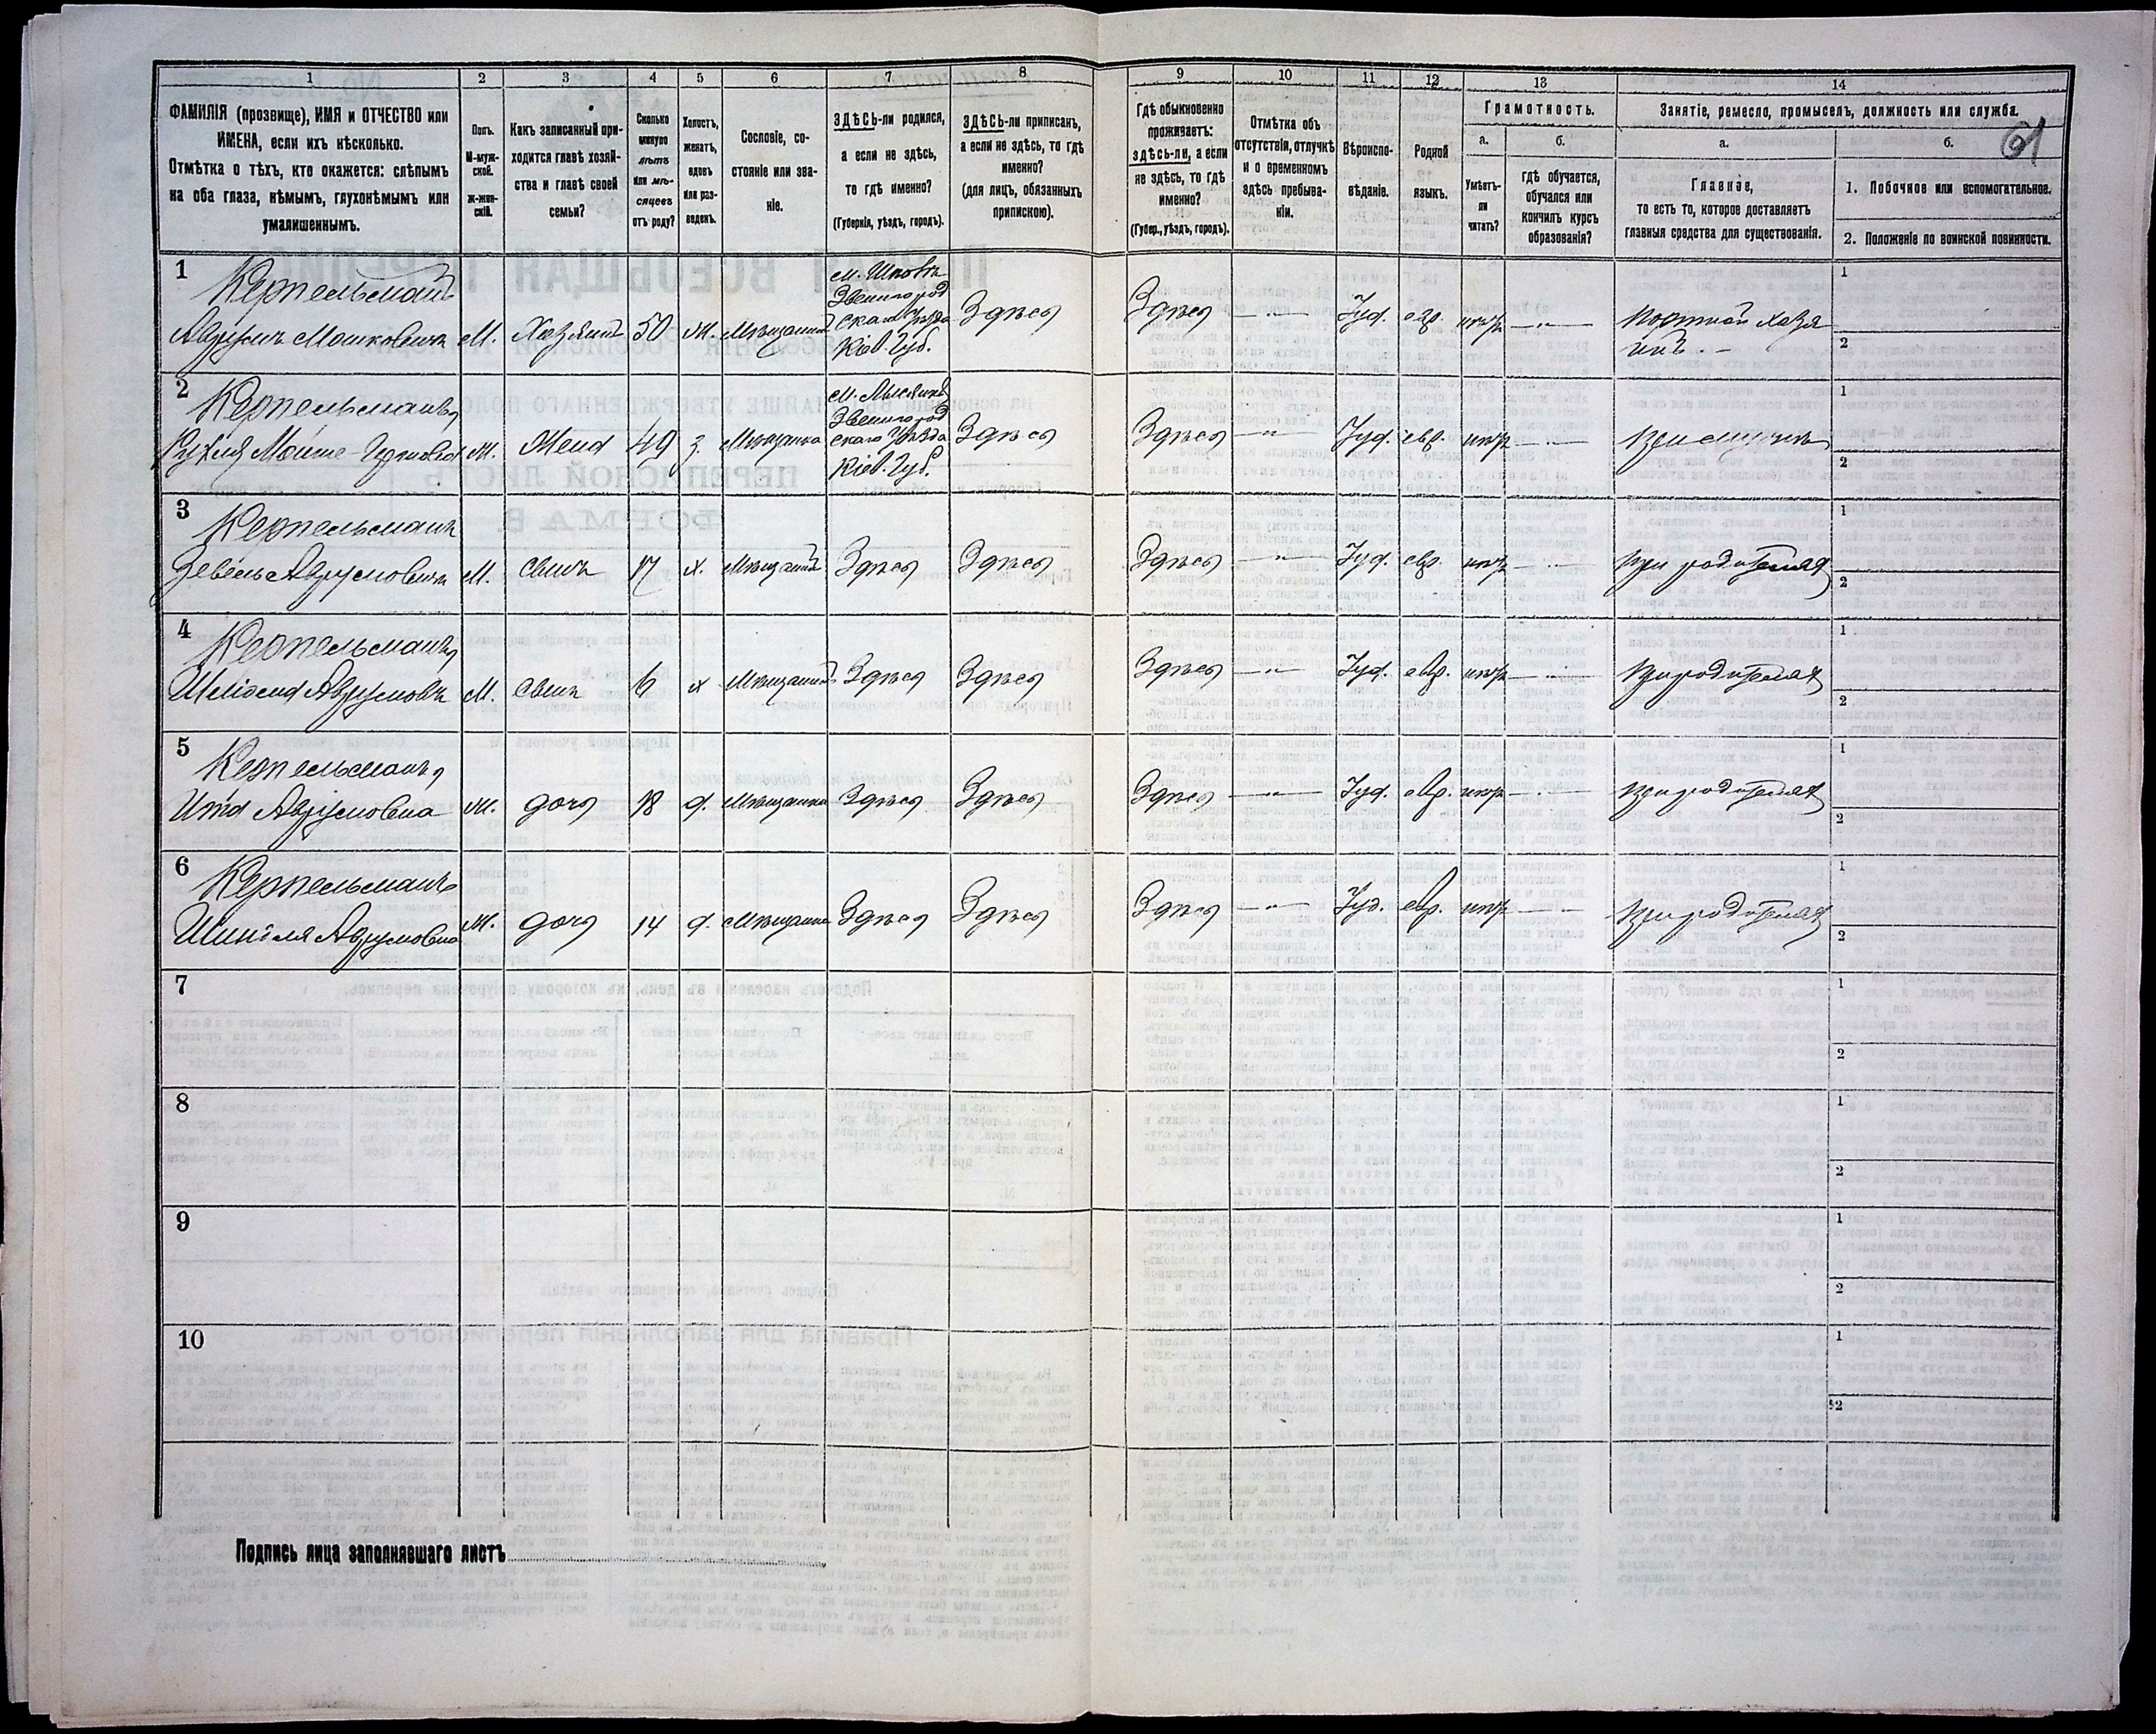 1 2 3 4 5 6 7 8 9 10 11 12 13 14
ФАМИЛІЯ (прозвище), ИМЯ и ОТЧЕСТВО или
ИМЕНА, если ихъ нѣсколько.
Отмѣтка о тѣхъ, кто окажется: слѣпымъ
на оба глаза, нѣмымъ, глухонѣмымъ или
умалишеннымъ.
Полъ.
М-муж-
ской.
ж-жен-
скій.
Какъ записанный при-
ходится главѣ хозяй-
ства и главѣ своей
семьи?
Сколько
минуло
лѣтъ
или мѣ-
сяцевъ
отъ роду?
Холостъ,
женатъ,
вдовъ
или раз-
веденъ.
Сословіе, со-
стояніе или зва-
ніе.
ЗДѢСЬ-ли родился,
а если не здѣсь,
то гдѣ именно?
(Губернія, уѣздъ, городъ).
ЗДѢСЬ-ли приписанъ,
а если не здѣсь, то гдѣ
именно?
(для лицъ, обязанныхъ
припискою).
Гдѣ обыкновенно
проживаетъ:
здѣсь-ли, а если
не здѣсь, то гдѣ
именно?
(Губер., уѣздъ, городъ).
Отмѣтка объ
отсутствіи, отлучкѣ
и о временномъ
здѣсь пребыва-
ніи.
Вѣроиспо-
вѣданіе.
Родной
языкъ.
Грамотность.
а.
Умѣетъ-
ли
читать?
б.
гдѣ обучается,
обучался или
кончилъ курсъ
образованія?
Занятіе, ремесло, промыселъ, должность или служба.
а.
Главное,
то есть то, которое доставляетъ
главныя средства для существованія.
б.
61
1. Побочное или вспомогательное.
2. Положеніе по воинской повинности.
1
Керпельманъ
Аврумъ Мошковичъ М. Хозяинъ 50 ж. Мѣщанинъ
Звенигород
скаго Уѣзда
Кіев. Губ.
Здѣсь Здѣсь —"— Іуд. евр. нѣтъ —"— портной хозя
инъ. -
1
2
2
Керпельманъ,
м. Лысянкѣ
Звенигород
скаго Уѣзда
Кіев. Губ.
Рухля М. Жена 49 з. Мѣщанка Здѣсь Здѣсь —"— Іуд. евр. нѣтъ —"— при мужѣ
1
2
3
Керпельманъ
Зевель Аврумовичъ М. сынъ 17 х. Мѣщанинъ Здѣсь Здѣсь Здѣсь —"— Іуд. евр. нѣтъ —"— при родителях
1
2
4
Керпельманъ,
Аврумовъ М. сынъ 6 х Мѣщанинъ Здѣсь Здѣсь Здѣсь —"— Іуд. евр. нѣтъ —"— при родителях
1
2
5
Керпельманъ,
Ита Аврумовна ж. дочь 18 д. Мѣщанка Здѣсь Здѣсь Здѣсь —"— Іуд. евр. нѣтъ —"— при родителях
1
2
6
Керпельманъ
Аврумовна ж. дочь 14 д. Мѣщанка Здѣсь Здѣсь Здѣсь —"— Іуд. евр. нѣтъ —"— при родителях
1
2
7
1
2
8
1
2
9
1
2
10
1
2
Подпись лица заполнявшаго листъ